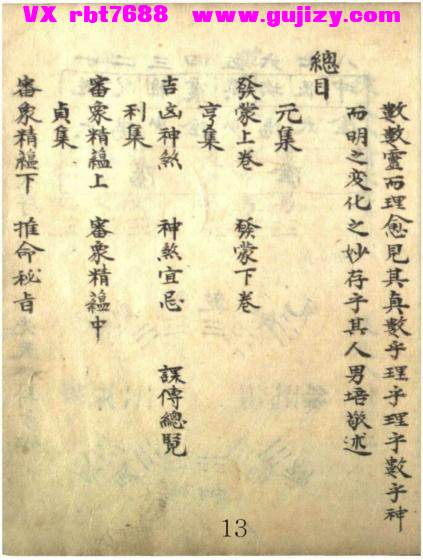 VX rbt7688 www.gujizy.com
數數靈而理愈見其真數乎理乎理乎數乎神
而明之變化之妙存乎其人男培敬述
總目
元集
發蒙上卷 發蒙下卷
亨集
吉凶神煞 神煞宜忌 課傳總覧
利集
審象精蘊上 審象精蘊中
貞集
審象精蘊下 推命秘旨
13